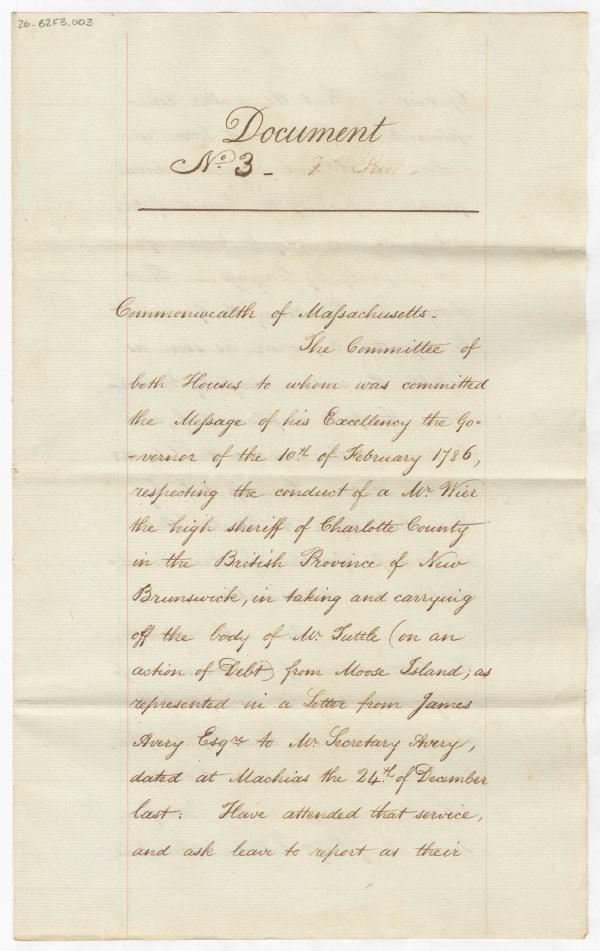 26-B2F3.003
Document
No. 3 -
Commonwealth of Massachusetts -
The Committee of
both Houses to whom was committed
the Message of his Excellency the Go=
-vernor of the 10th of February 1786,
respecting the conduct of a Mr. Wier
the high sheriff of Charlotte County
in the British Province of New
Brunswick, in taking and carrying
off the body of Mr. Tuttle (on an
action of Debt) from Moose Island; as
represented in a Letter from James
Avery Esqre to Mr. Secretary Avery,
dated at Machias the 24th of December
last: Have attended that service,
and ask leave to report as their